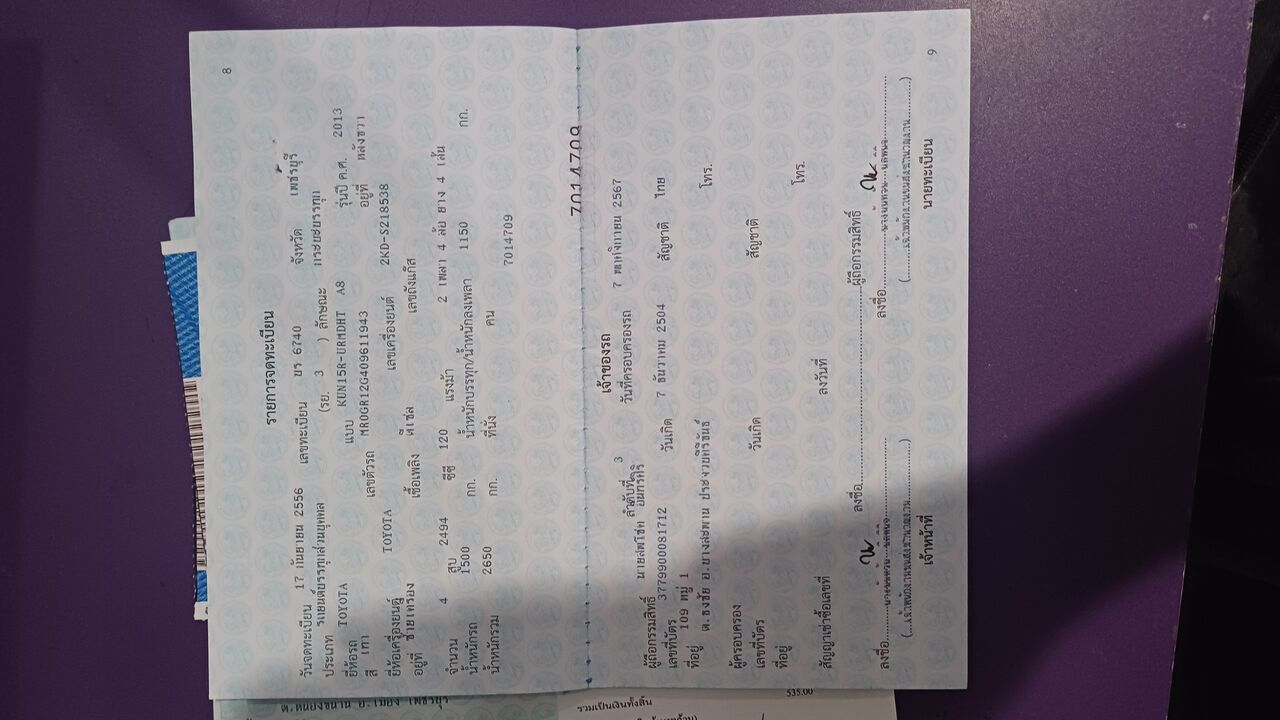 8
รายการจดทะเบียน
วันจดทะเบียน 17 กันยายน 2556 เลขทะเบียน บร 6740 จังหวัด เพชรบุรี
ประเภท รถยนต์บรรทุกส่วนบุคคล (รย. 3 ) ลักษณะ กระบะบรรทุก
ยี่ห้อรถ TOYOTA แบบ KUN15R-URMDHT A8 รุ่นปี ค.ศ. 2013
สี เทา เลขตัวรถ MR0GR12G409611943 อยู่ที่ หลังขวา
ยี่ห้อเครื่องยนต์ TOYOTA เลขเครื่องยนต์ 2KD-S218538
อยู่ที่ ซ้ายเครื่อง เชื้อเพลิง ดีเซล เลขถังแก๊ส
จำนวน 4 สูบ 2494 ซีซี 120 แรงม้า 2 เพลา 4 ล้อ ยาง 4 เส้น
น้ำหนักรถ 1500 กก. น้ำหนักบรรทุก/น้ำหนักลงเพลา 1150 กก.
น้ำหนักรวม 2650 กก. ที่นั่ง คน 7014709
7014709
เจ้าของรถ
ลำดับที่ 3 วันที่ครอบครองรถ 7 พฤศจิกายน 2567
ผู้ถือกรรมสิทธิ์ นายสมโชค
เลขที่บัตร 3779900081712 วันเกิด 7 ธันวาคม 2504 สัญชาติ ไทย
ที่อยู่ 109 หมู่ 1
ต.ธงชัย อ.บางสะพาน ประจวบคีรีขันธ์ โทร.
ผู้ครอบครอง
เลขที่บัตร วันเกิด สัญชาติ
ที่อยู่ โทร.
สัญญาเช่าซื้อเลขที่ ลงวันที่
ลงชื่อ ผู้ถือกรรมสิทธิ์
ลงชื่อ ลงชื่อ
เจ้าหน้าที่ นายทะเบียน
9
ต.หนองขนาน อ.เมือง เพชรบุรี
รวมเป็นเงินทั้งสิ้น 535.00